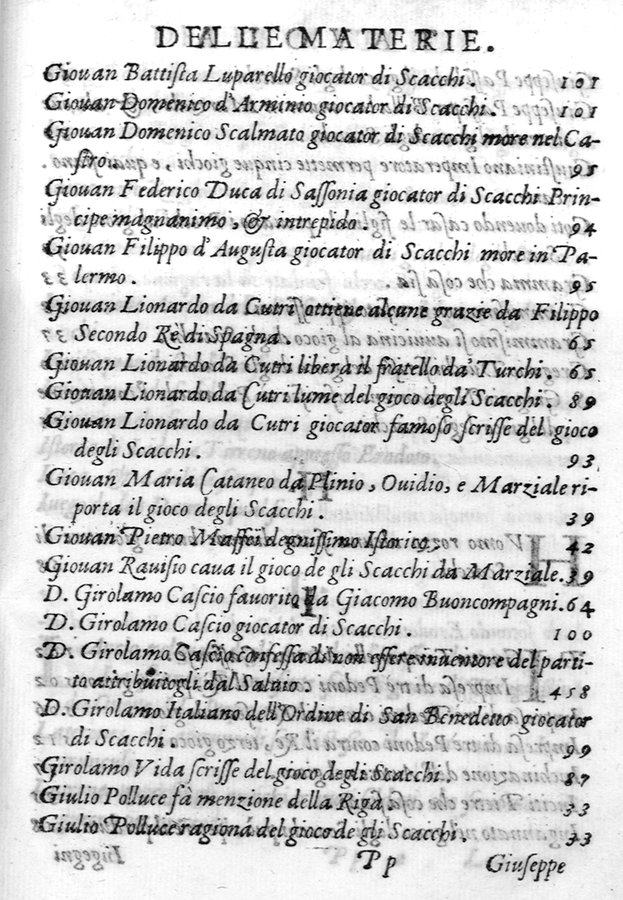 DELLE MATERIE.
Giouan Battista Luparello giocator di Scacchi. 101
Giouan Domenico d'Arminio giocator di Scacchi. 101
Giouan Domenico Scalmato giocator di Scacchi more nel Ca-
stro. 95
Giouan Federico Duca di Sassonia giocator di Scacchi Prin-
cipe magnanimo, & intrepido. 94
Giouan Filippo d'Augusta giocator di Scacchi more in Pa-
lermo. 95
Giouan Lionardo da Cutri ottiene alcune grazie da Filippo
Secondo Re di Spagna. 65
Giouan Lionardo da Cutri libera il fratello da' Turchi. 65
Giouan Lionardo da Cutri lume del gioco degli Scacchi. 89
Giouan Lionardo da Cutri giocator famoso scrisse del gioco
degli Scacchi. 93
Giouan Maria Cataneo da Plinio, Ouidio, e Marziale ri-
porta il gioco degli Scacchi. 39
Giouan Pietro Maffei degnissimo Istorico. 42
Giouan Rauisio caua il gioco de gli Scacchi da Marziale. 39
D. Girolamo Cascio fauorito da Giacomo Buoncompagni. 64
D. Girolamo Cascio giocator di Scacchi. 100
D. Girolamo Cascio confessa di non essere inuentore del parti-
to attribuitogli dal Saluio. 458
D. Girolamo Italiano dell'Ordine di San Benedetto giocator
di Scacchi. 99
Girolamo Vida scrisse del gioco degli Scacchi. 87
Giulio Polluce fà menzione della Riga. 33
Giulio Polluce ragiona del gioco de gli Scacchi. 33
Pp Giuseppe